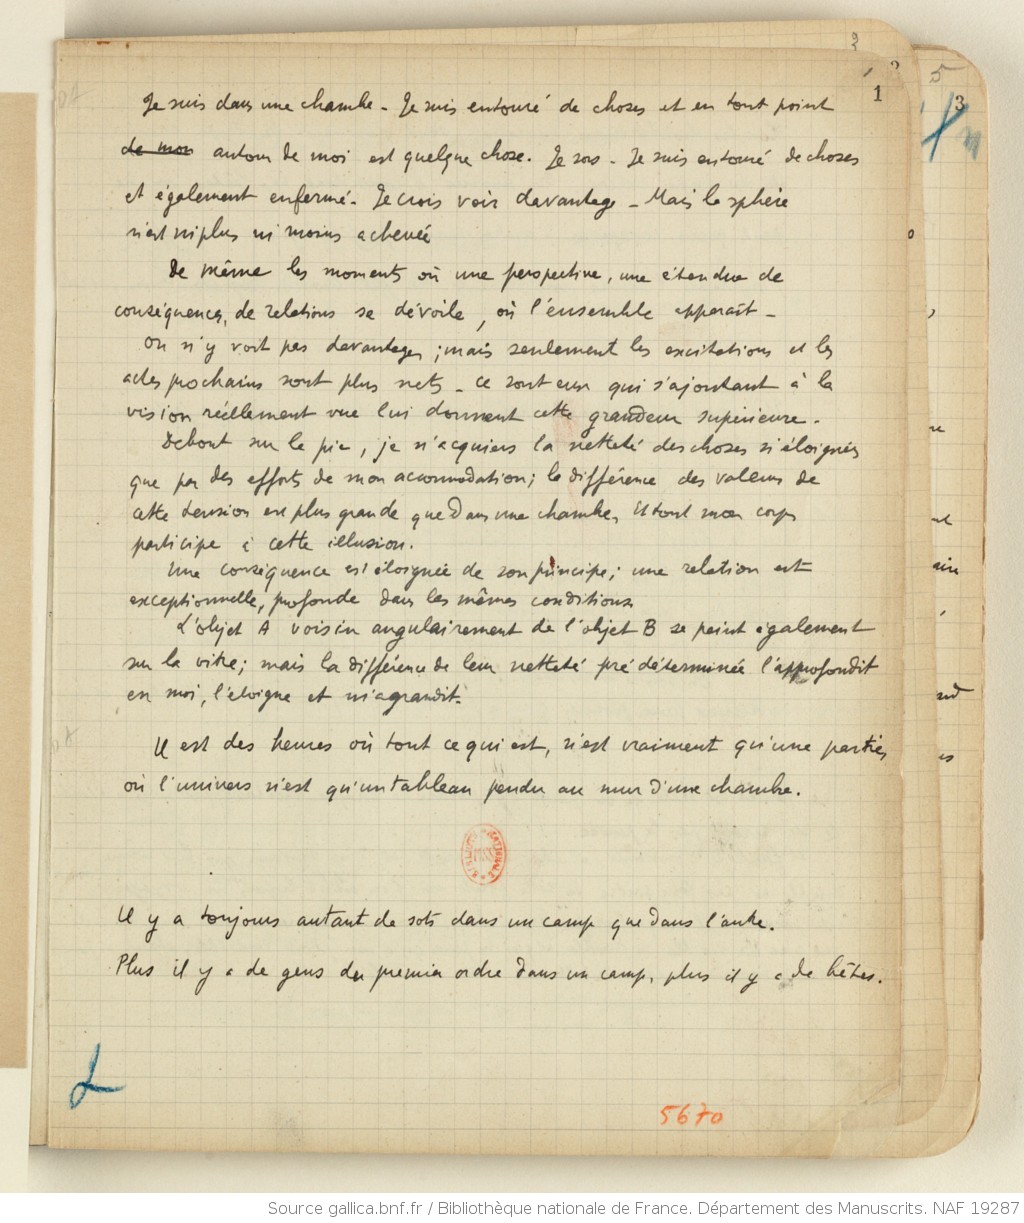 1
Je suis dans une chambre - Je suis entouré de choses et en tout point
de mon autour de moi est quelque chose. Je sors - Je suis entouré de choses
et également enfermé - Je crois voir davantage - Mais la sphère
n'est ni plus ni moins achevée
De même les moments où une perspective, une étendue de
conséquences, de relations se dévoile, où l'ensemble apparaît -
On n'y voit pas davantage ; mais seulement les excitations et les
actes prochains sont plus nets - Ce sont eux qui s'ajoutant à la
vision réellement vue lui donnent cette grandeur supérieure.
Debout sur le pic, je n'acquiers la netteté des choses si éloignées
que par des efforts de mon accommodation ; la différence des valeurs de
cette tension est plus grande que dans une chambre, et tout mon corps
participe à cette illusion.
Une conséquence est éloignée de son principe ; une relation est
exceptionnelle, profonde dans les mêmes conditions
L'objet A voisin angulairement de l'objet B se peint également
sur la vitre ; mais la différence de leur netteté prédéterminée l'approfondit
en moi, l'éloigne et m'agrandit.
Il est des heures où tout ce qui est, n'est vraiment qu'une partie,
où l'univers n'est qu'un tableau pendu au mur d'une chambre.
Il y a toujours autant de sots dans un camp que dans l'autre.
Plus il y a de gens du premier ordre dans un camp, plus il y a de bêtes.
5670
2
3
5
Source gallica.bnf.fr / Bibliothèque nationale de France. Département des Manuscrits. NAF 19287